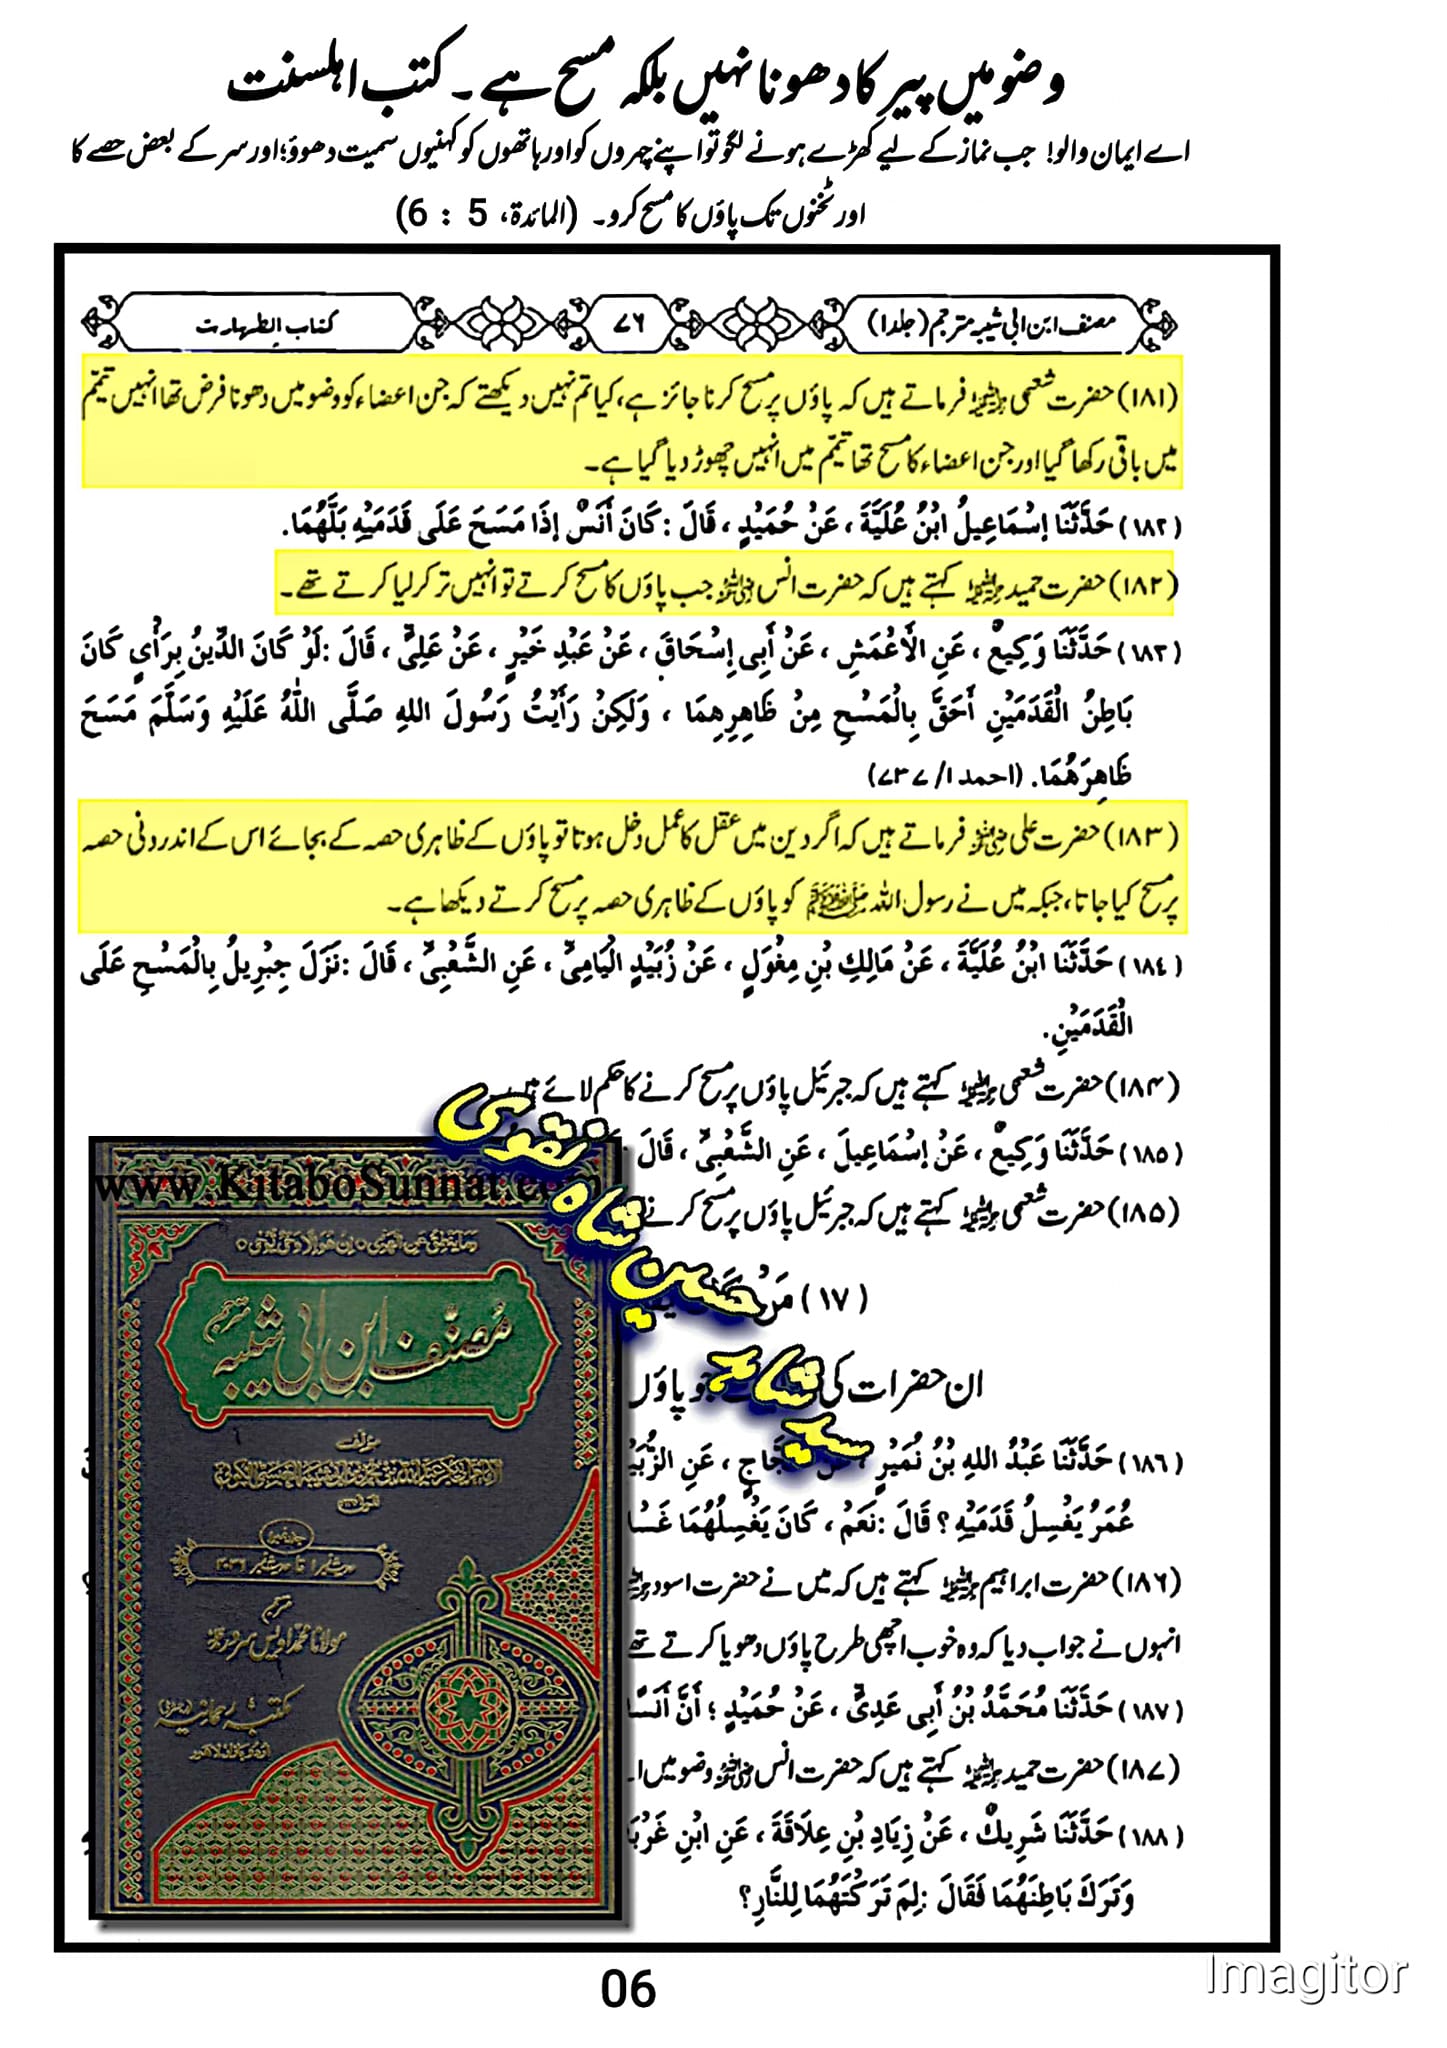 وضو میں پیر کا دھونا نہیں بلکہ مسح ہے۔ کتب اہلسنت
اے ایمان والو! جب نماز کے لیے کھڑے ہونے لگو تو اپنے چہروں کو اور ہاتھوں کو کہنیوں سمیت دھوؤ؛ اور سر کے بعض حصے کا
اور ٹخنوں تک پاؤں کا مسح کرو۔ (المائدۃ، 5 : 6)
مصنف ابن ابی شیبہ مترجم (جلد ۱)
۷۶
کتاب الطهارت
(۱۸۱) حضرت شعبی رحمہ اللہ فرماتے ہیں کہ پاؤں پر مسح کرنا جائز ہے، کیا تم نہیں دیکھتے کہ جن اعضاء کو وضو میں دھونا فرض تھا انہیں تیمّم
میں باقی رکھا گیا اور جن اعضاء کا مسح تھا تیمّم میں انہیں چھوڑ دیا گیا ہے۔
(۱۸۲) حَدَّثَنَا إسْمَاعِيلُ ابْنُ عُلَيَّةَ ، عَنْ حُمَيْدٍ ، قَالَ :كَانَ أَنَسٌ إذَا مَسَحَ عَلَى قَدَمَيْهِ بَلَّهُمَا.
(۱۸۲) حضرت حمید رحمہ اللہ کہتے ہیں کہ حضرت انس رضی اللہ عنہ جب پاؤں کا مسح کرتے تو انہیں تر کر لیا کرتے تھے۔
(۱۸۳) حَدَّثَنَا وَكِيعٌ ، عَنِ الأَعْمَشِ ، عَنْ أَبِي إِسْحَاقَ ، عَنْ عَبْدِ خَيْرٍ ، عَنْ عَلِيٍّ ، قَالَ :لَوْ كَانَ الدِّينُ بِرَأْيٍ كَانَ
بَاطِنُ الْقَدَمَيْنِ أَحَقَّ بِالْمَسْحِ مِنْ ظَاهِرِهِمَا ، وَلَكِنْ رَأَيْتُ رَسُولَ اللهِ صَلَّى اللَّهُ عَلَيْهِ وَسَلَّمَ مَسَحَ
ظَاهِرَهُمَا. (احمد ۱/ ۷۳۷)
(۱۸۳) حضرت علی رضی اللہ عنہ فرماتے ہیں کہ اگر دین میں عقل کا عمل دخل ہوتا تو پاؤں کے ظاہری حصہ کے بجائے اس کے اندرونی حصہ
پر مسح کیا جاتا، جبکہ میں نے رسول اللہ ﷺ کو پاؤں کے ظاہری حصہ پر مسح کرتے دیکھا ہے۔
(۱۸٤) حَدَّثَنَا ابْنُ عُلَيَّةَ ، عَنْ مَالِكِ بْنِ مِغْوَلٍ ، عَنْ زُبَيْدٍ الْيَامِيِّ ، عَنِ الشَّعْبِيِّ ، قَالَ :نَزَلَ جِبْرِيلُ بِالْمَسْحِ عَلَى
الْقَدَمَيْنِ.
(۱۸۴) حضرت شعبی رحمہ اللہ کہتے ہیں کہ جبرئیل پاؤں پر مسح کرنے کا حکم لائے ہیں۔
(۱۸۵) حَدَّثَنَا وَكِيعٌ ، عَنْ إسْمَاعِيلَ ، عَنِ الشَّعْبِيِّ ، قَالَ
(۱۸۵) حضرت شعبی رحمہ اللہ کہتے ہیں کہ جبرئیل پاؤں پر مسح کرنے
(۱۷) مَنْ
ان حضرات کی جو پاؤں
(۱۸۶) حَدَّثَنَا عَبْدُ اللهِ بْنُ نُمَيْرٍ ، عَنْ حَجَّاجٍ ، عَنِ
عُمَرُ يَغْسِلُ قَدَمَيْهِ ؟ قَالَ :نَعَمْ ، كَانَ يَغْسِلُهُمَا
(۱۸۶) حضرت ابراہیم رحمہ اللہ کہتے ہیں کہ میں نے حضرت اسود
انہوں نے جواب دیا کہ وہ خوب اچھی طرح پاؤں دھویا کرتے تھے
(۱۸۷) حَدَّثَنَا مُحَمَّدُ بْنُ أَبِي عَدِيٍّ ، عَنْ حُمَيْدٍ ؛ أَنَّ
(۱۸۷) حضرت حمید رحمہ اللہ کہتے ہیں کہ حضرت انس رضی اللہ عنہ وضو میں
(۱۸۸) حَدَّثَنَا شَرِيكٌ ، عَنْ زِيَادِ بْنِ عِلَاقَةَ ، عَنِ ابْنِ
وَتَرَكَ بَاطِنَهُمَا فَقَالَ :لِمَ تَرَكْتَهُمَا لِلنَّارِ؟
سید شاہد حسین شاہ نقوی
www.KitaboSunnat.com
مُصنّف ابن ابی شیبہ مترجم
مولف
حدیث نمبر ۱ تا حدیث نمبر
مترجم
مولانا محمد اویس سرور
مکتبہ رحمانیہ
اردو بازار لاہور
06
Imagitor